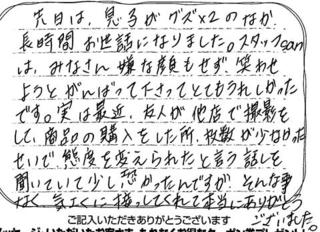 先日は、息子がグズ×2のなか
長時間お世話になりました。スタッフさん
は、みなさん嫌な顔もせず、笑わせ
ようとがんばって下さってとてもうれしかった
です。実は最近、友人が他店で撮影を
して、商品の購入をした所、枚数が少なかった
せいで態度を変えられたと言う話しを
聞いていて少し恐かったんですが、そんな事
なく気さくに接してくれて本当にありがとう
ございました。
ご記入いただきありがとうございます